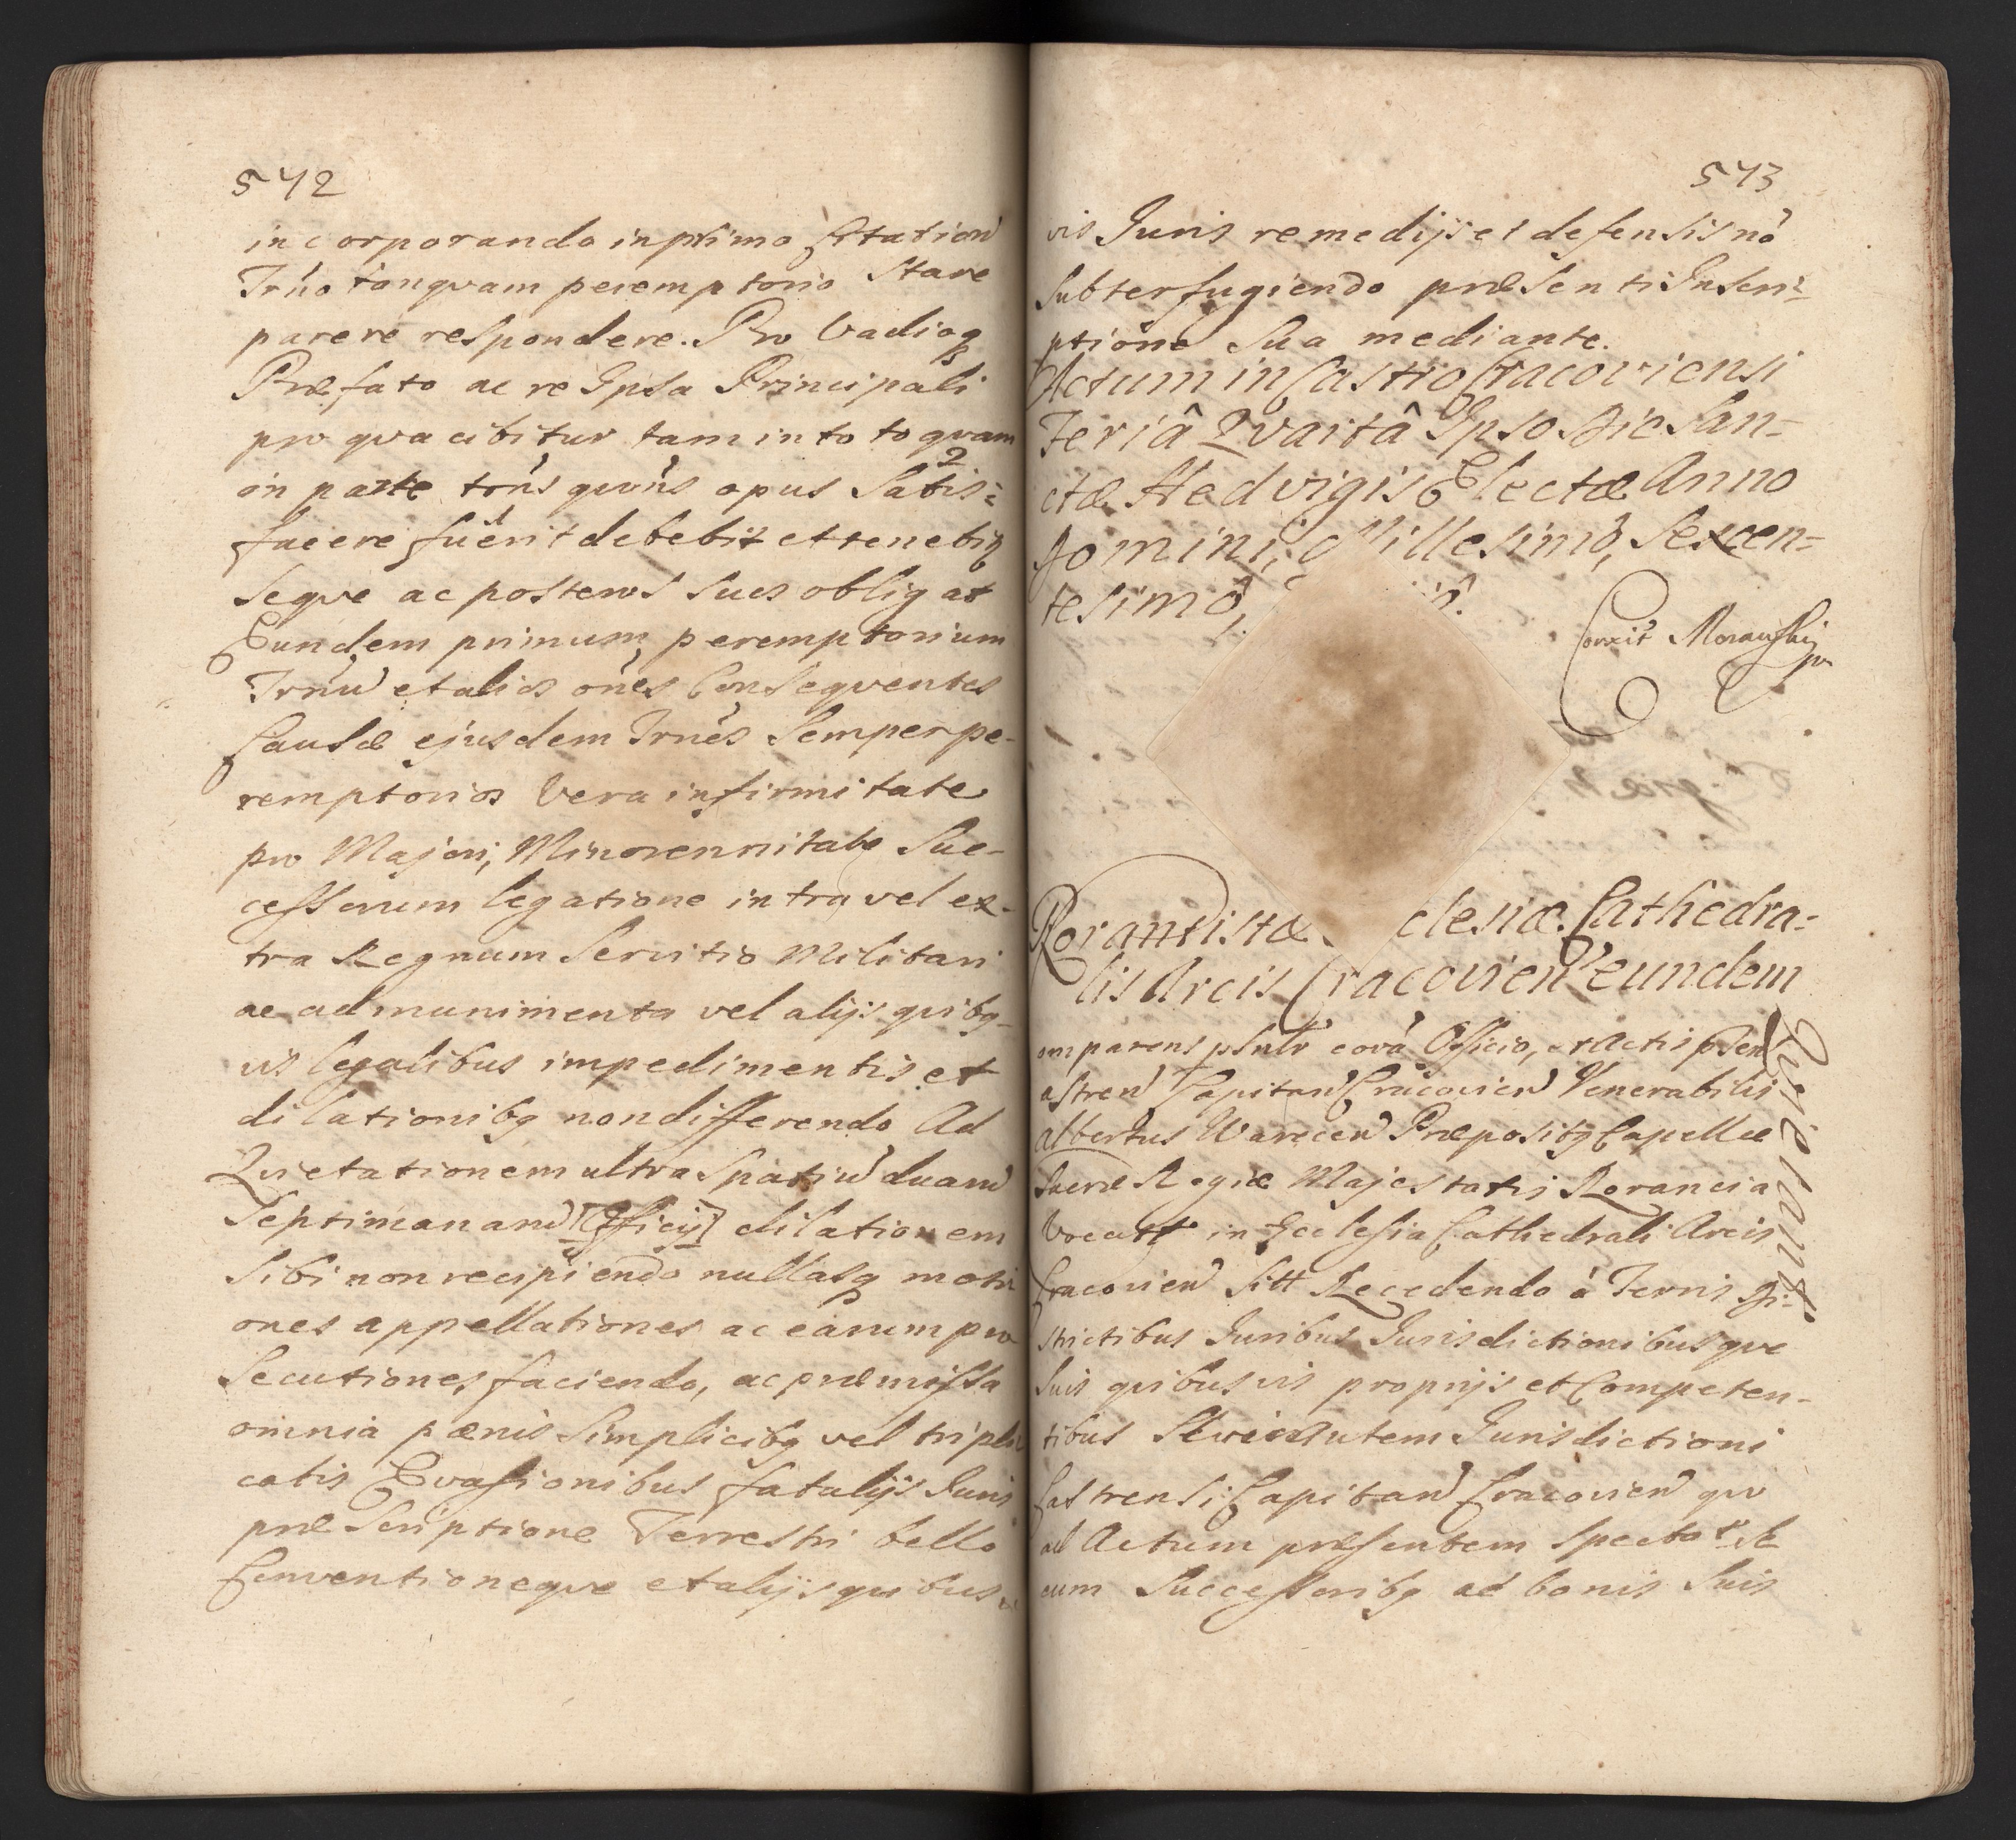 542
incorporando in primo Citation̄
Trn̄o tanquam peremptorio stare
parere respondere. Pro Vadioq
Præfato ac re Ipsa Principali
pro qva cibitur tam in toto qvam
in parte ton̄s qvon̄s opus satis=
2
facere fuerit debebit et tenebitq
seqve ac posteros suos obligat
Eundem primum peremptorium
Trn̄u et alios on̄es Conseqventes
Causæ ejusdem Trn̄es semper pe-
remptorios vera infirmitate
pro Majori, Minorennitate suc-
cessorum legatione intra vel ex-
tra Regnum servitio militari
ac ad munimenta vel alijs qvibq-
vis legalibus impedimentis et
dilationibq non differendo Ad
Qvietationem ultra spatiū duarū
septimanarū [Officij] dilationem
sibi non recipiendo nullasq moti
ones appellationes ac earum pro
secutiones faciendo, ac præmissa
omnia pænis simplicibq vel tripli
catis Evasionibus fatalijs Juris
præscriptione Terrestri bello
Conventioneqve et alijs qvibus
543
vis Juris remedijs et defensis nō
subterfugiendo præsenti Inscri=
ptione sua mediante.
Actum in Castro Cracoviensi
Feriâ Qvartâ Ipso Die San=
ctæ Hedvigis Electæ Anno
Domini, Millesimô, Sexcen=
tesimô,
Correxit Morawski
mp
Rorantistæ clesiæ Cathedra=
lis Arcis Cracovien̄ eundem
Qvietant
omparens psn̄lr corā Officio, et Actis p̄sen
astren̄ Capitan̄ Cracovien̄ Venerabilis
Albertus Warecen̄ Præpositq Capellæ
Sacræ Regiæ Majestatis Rorancia
vocatæ in Ecclesia Cathedrali Arcis
Cracovien̄ sitæ Recedendo à Terris Di-
strictibus Juribus Jurisdictionibusqve
suis qvibusvis proprijs et Competen-
tibus Se vero autem Jurisdictioni
Castrensi Capitan̄ Cracovien̄ qvo
ad Actum præsentem spectat se
cum successoribq ac bonis suis